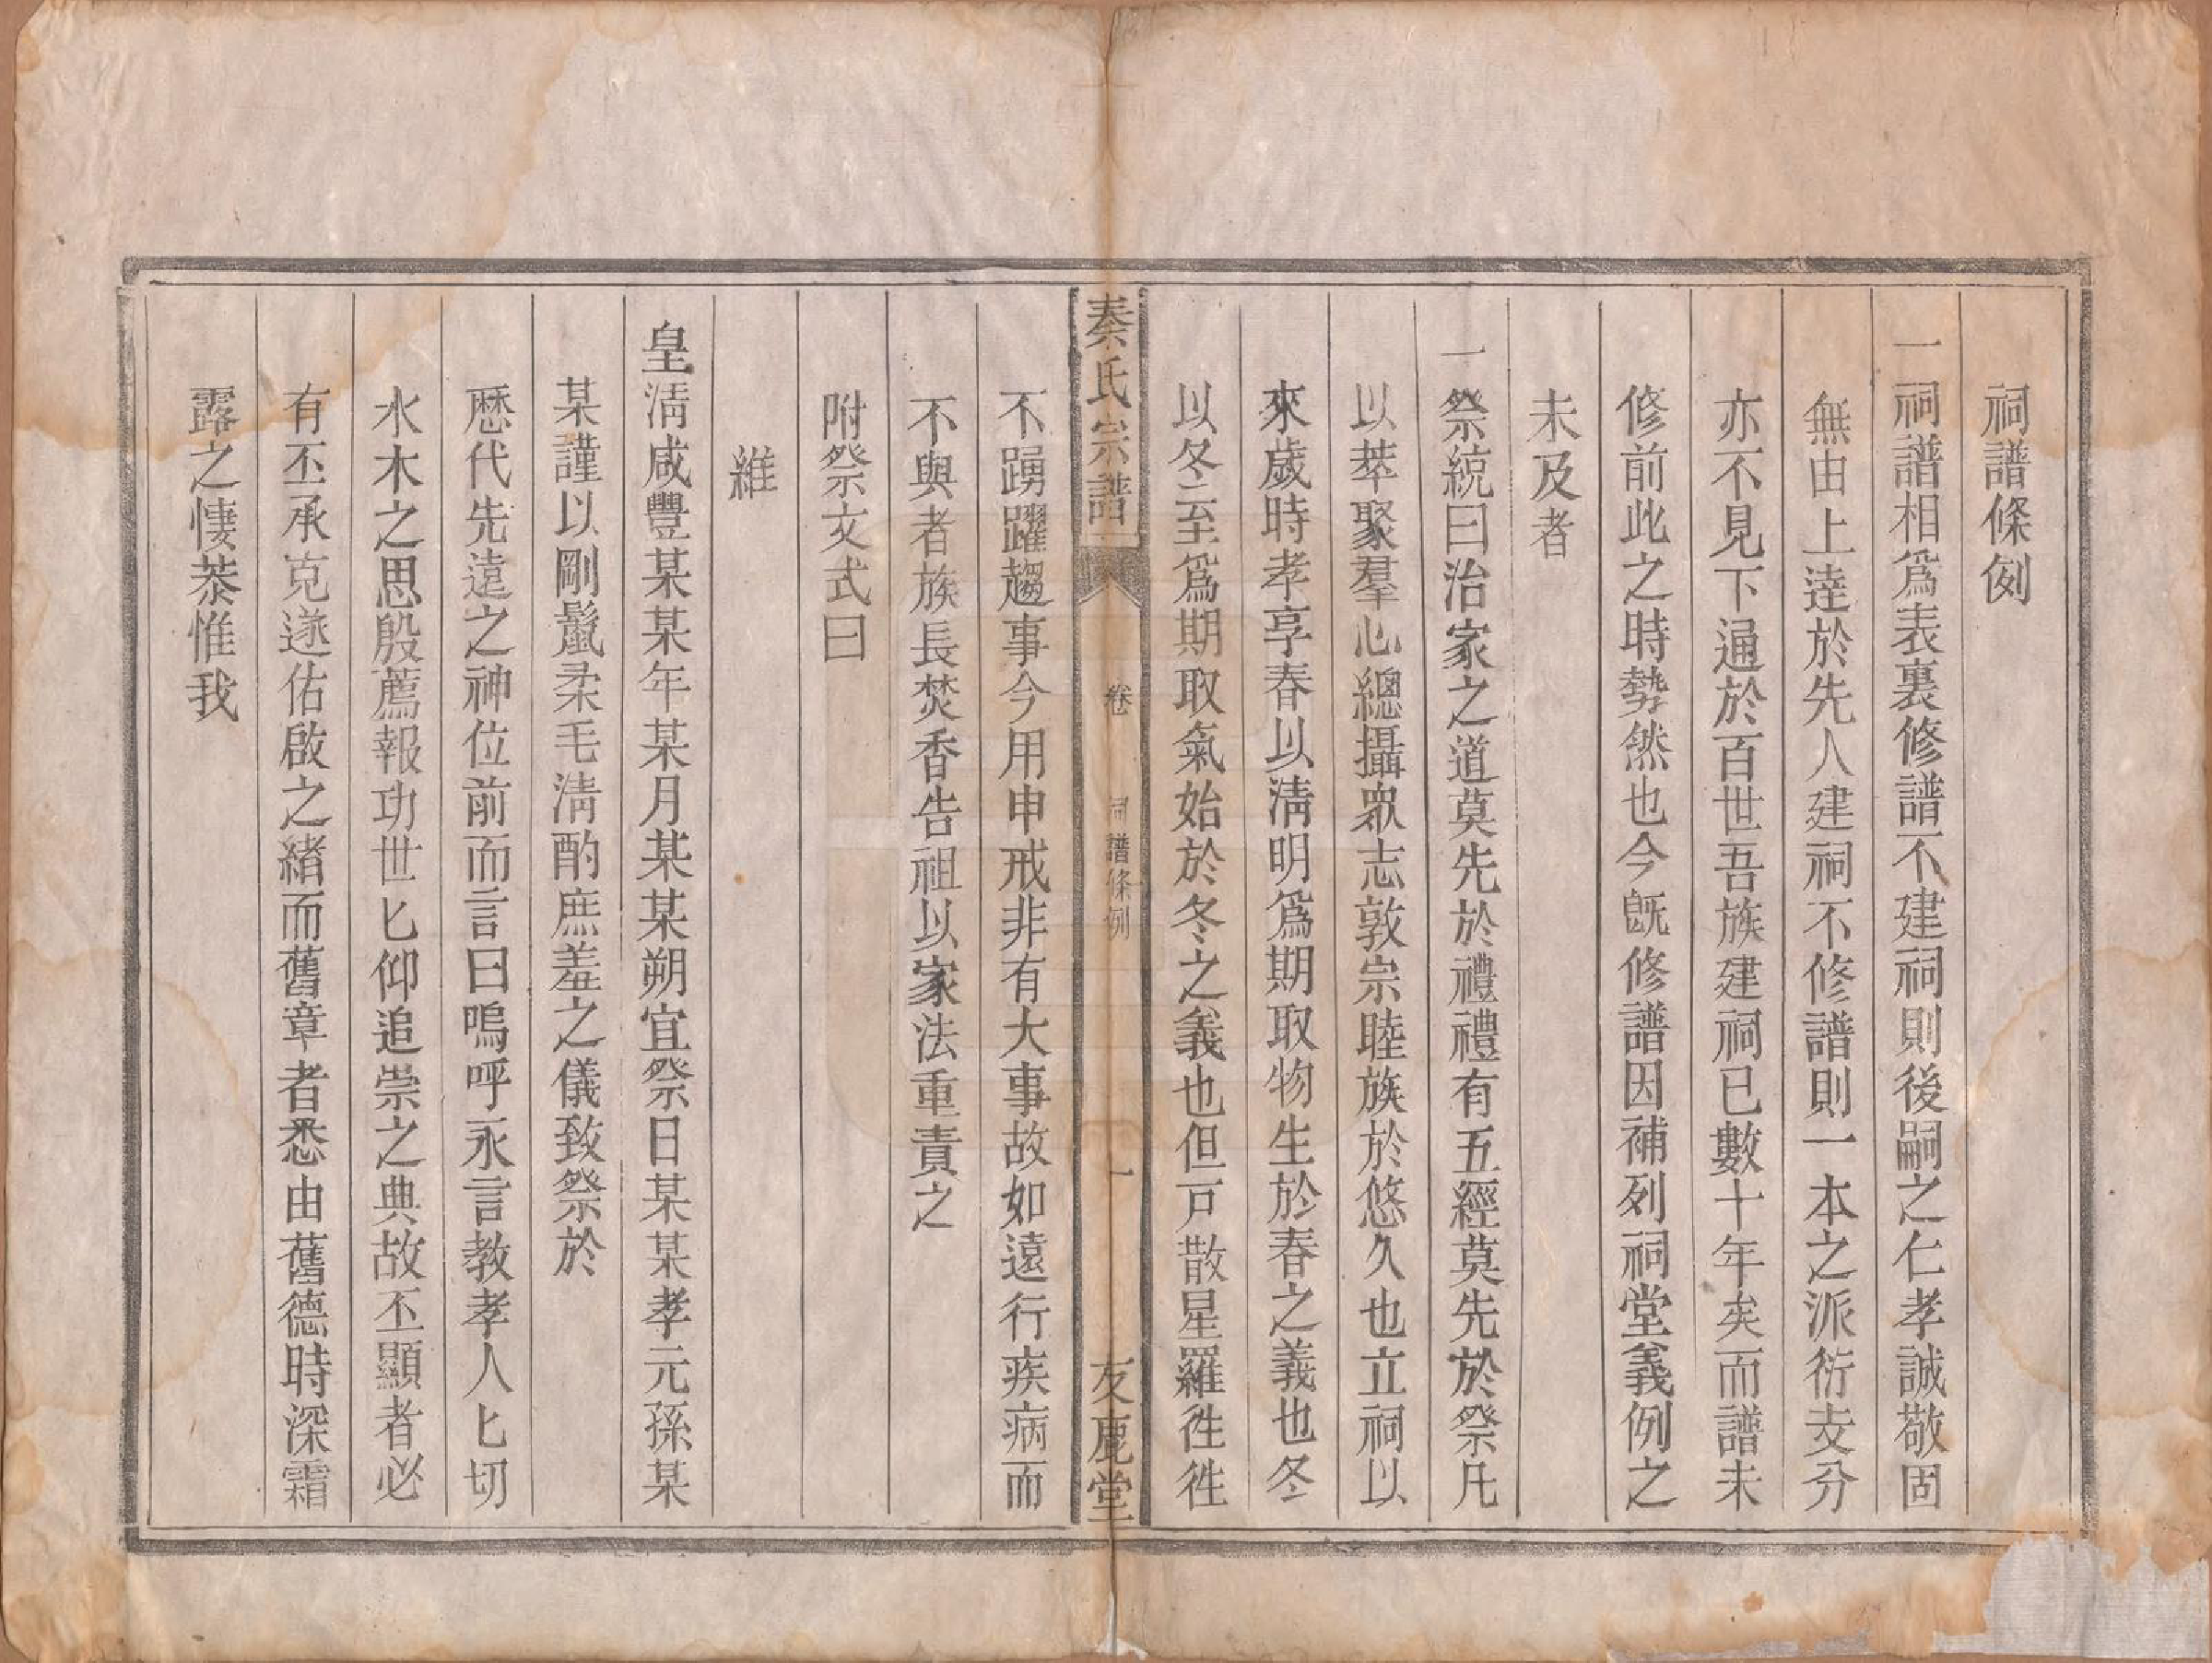 祠譜條例
一祠譜相爲表裏修譜不建祠則後嗣之仁孝誠敬固
無由上逹於先人建祠不修譜則一本之派衍支分
亦不見下通於百世吾族建祠已數十年矣而譜未
修前此之時勢然也今旣修譜因補列祠堂義例之
未及者
一祭統曰治家之道莫先於禮禮有五經莫先於祭凡
以萃聚羣心總攝衆志敦宗睦族於悠久也立祠以
來歲時孝享春以淸明爲期取物生於春之義也冬
以冬至爲期取氣始於冬之義也但戸散星羅徃徃
秦氏宗譜
卷
祠譜條例
一
友鹿堂
不踴躍趨事今用申戒非有大事故如遠行疾病而
不與者族長焚香告祖以家法重責之
附祭文式曰
維
皇淸咸豐某某年某月某某朔宜祭日某某孝元孫某
某謹以剛鬣柔毛淸酌庶羞之儀致祭於
歷代先遠之神位前而言曰嗚呼永言敎孝人匕切
水木之思殷薦報功世匕仰追崇之典故丕顯者必
有丕承克遂佑啟之緖而舊章者悉由舊德時深霜
露之悽恭惟我